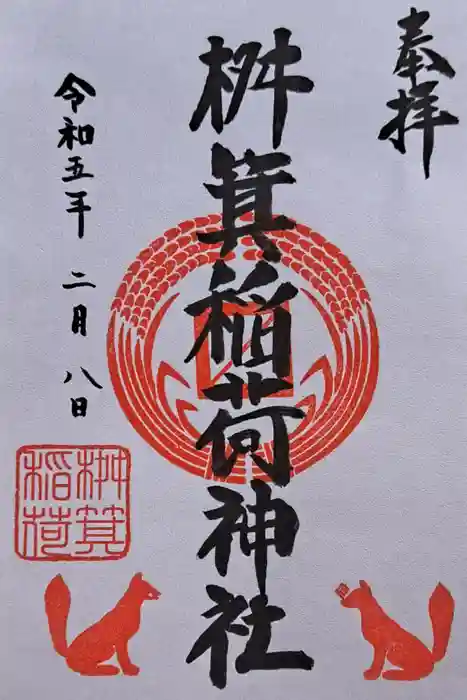 奉拝
桝箕稲荷神社
令和五年 二月 八日
桝箕
稲荷